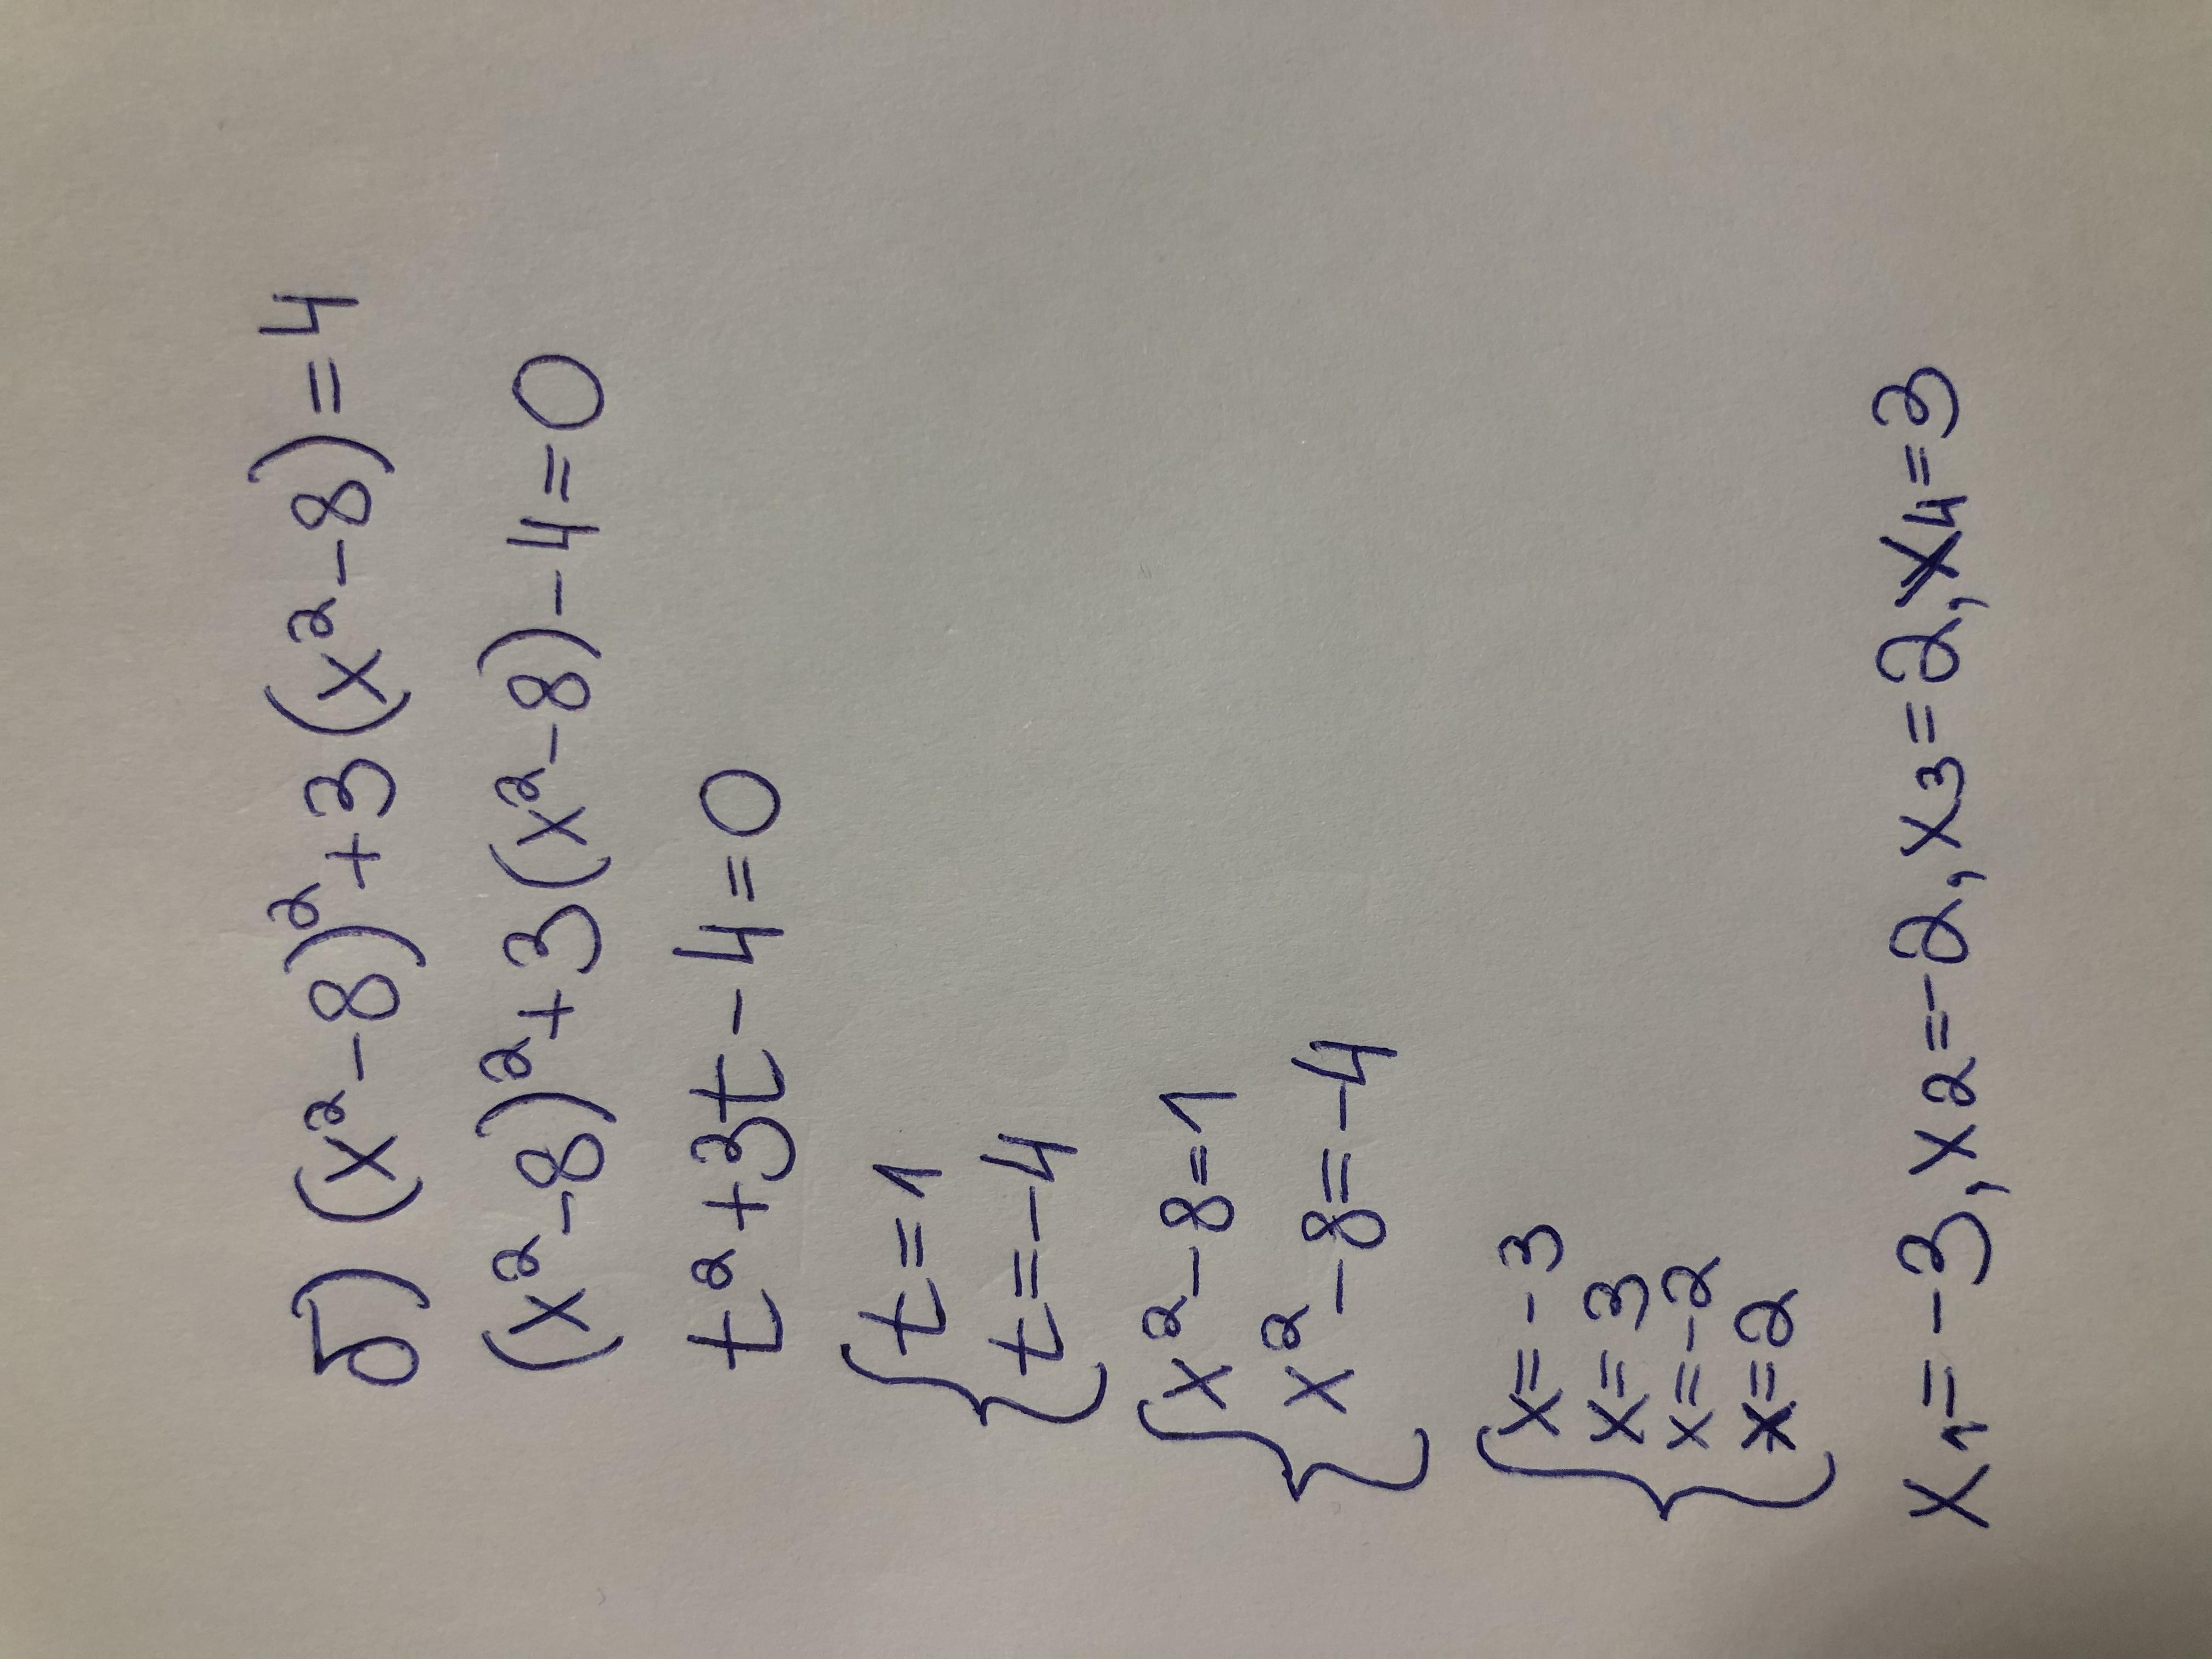 б) (x²-8)²+3(x²-8)=4
(x²-8)²+3(x²-8)-4=0
t²+3t-4=0
{t=1
t=-4
{x²-8=1
x²-8=-4
{x=-3
x=3
x=-2
x=2
x₁=-3, x₂=-2, x₃=2, x₄=3